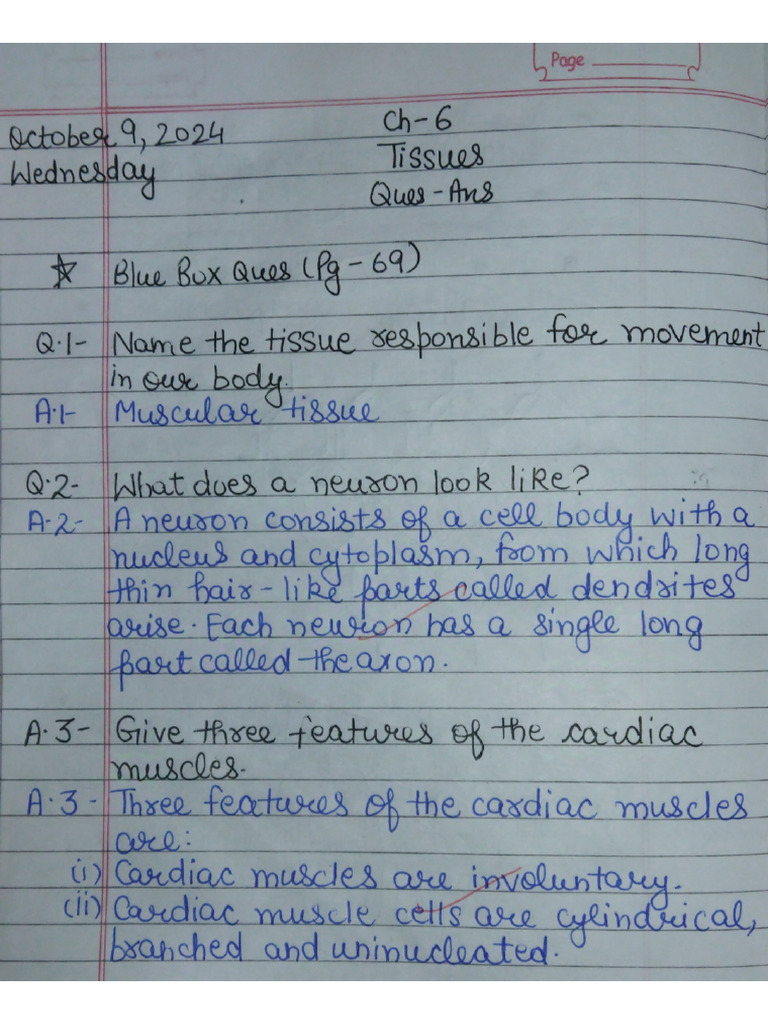 Page
October 9, 2024
Ch-6
Wednesday
Tissues
Ques-Ans
☆ Blue Box Ques (Pg-69)
Q.1- Name the tissue responsible for movement
in our body.
A.1- Muscular tissue
Q.2- What does a neuron look like?
A.2- A neuron consists of a cell body with a
nucleus and cytoplasm, from which long
thin hair-like parts called dendrites
arise. Each neuron has a single long
part called the axon.
A.3- Give three features of the cardiac
muscles.
A.3- Three features of the cardiac muscles
are:
(i) Cardiac muscles are involuntary.
(ii) Cardiac muscle cells are cylindrical,
branched and uninucleated.